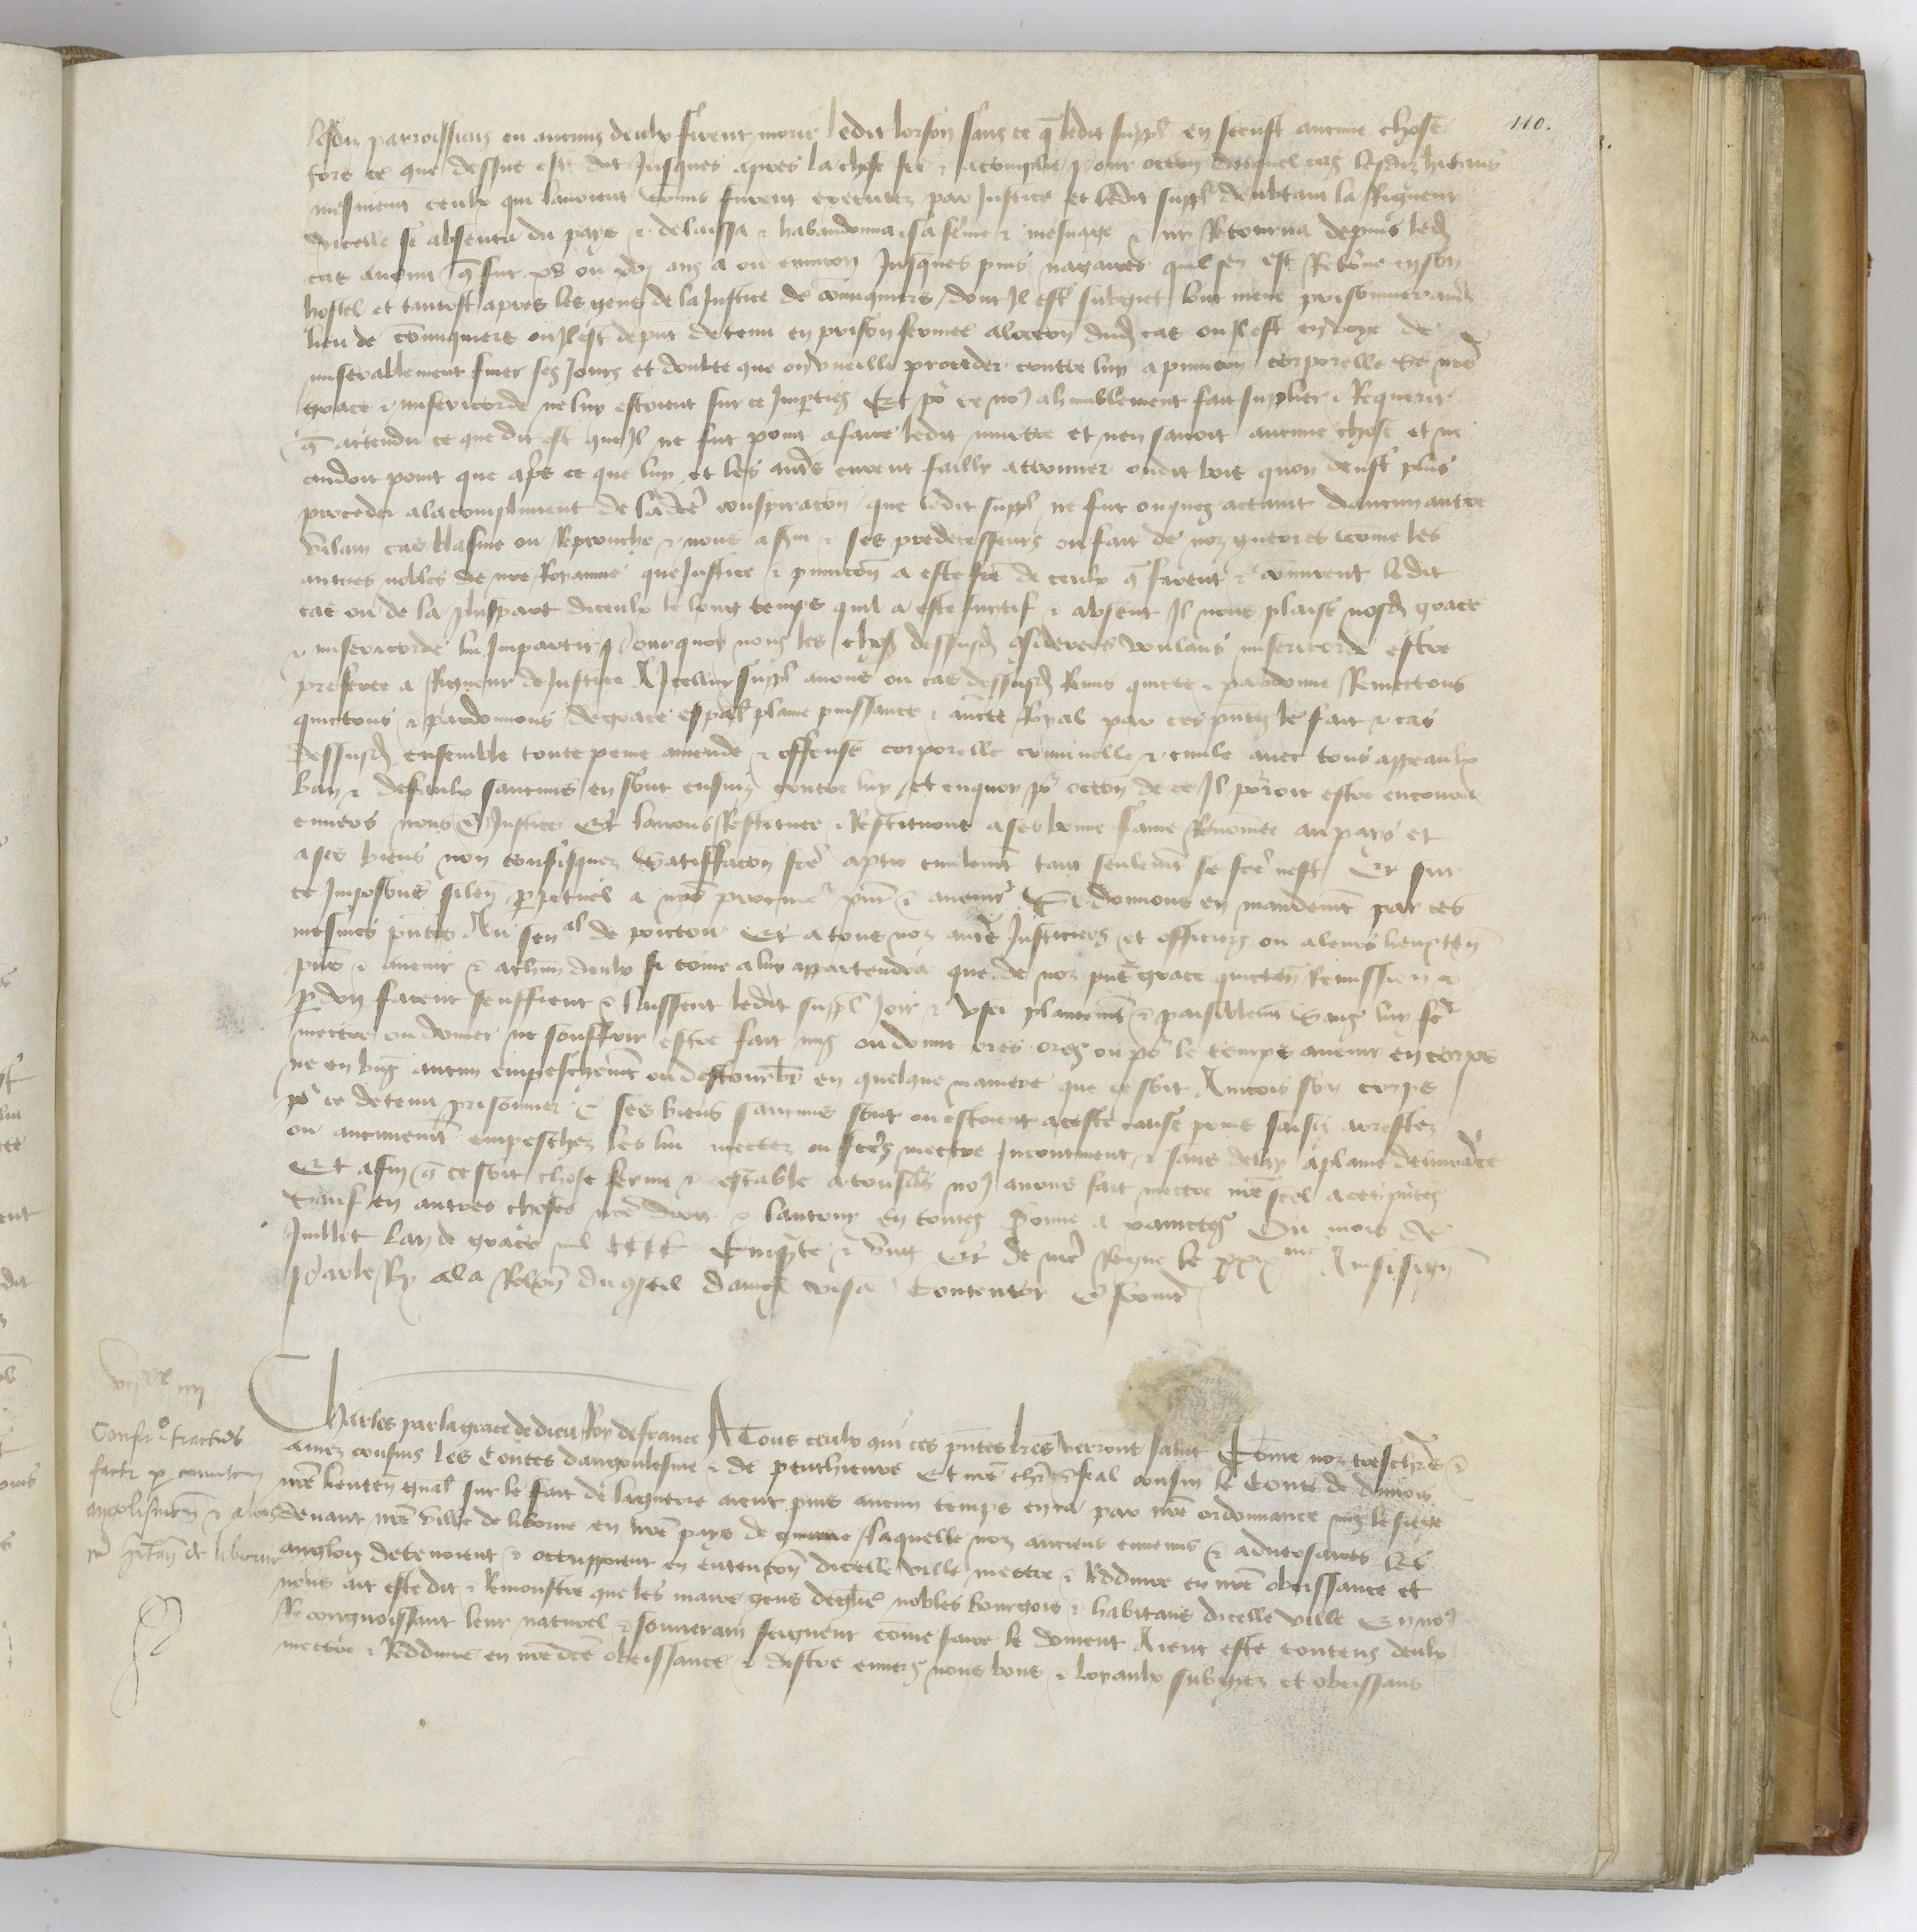 110.
lesdiz parroissiens ou aucuns deulx firent morir ledit lorson sans ce q̄ ledit suppl' en sceust aucune chose
fors ce que dessus est dit Jusques apres la chose fcē & acomplie pour occōn duquel cas lesdiz hītans
mesmemt̄ ceulx qui lauoient cōmis furent executez par Justice et ledit suppl' doubtant la Rigueur
dicelle se absenta du pays & delaissa & habandonna sa fēme & mesnage & ny Retourna depuis led'
cas auenu q̄ fut xv ou xvj ans a ou enuiron Jusques puis nagaires quil sen est Retōne en son
hostel et tantost apres les gens de la Justice de cōmiquiers dont Jl est subgiet lont mene prisonnier aud'
lieu de cōmiquiers ou Jl est depuis detenu en prison fermee a loccōn dud' cas ou Jl est en voye de
miserablement finer ses Jours et doubte que on vueille proceder contre luy a punicōn corporelle se nrē
grace & misericorde ne luy estoient sur ce Imparties Et po' ce no9 a humblement fait supplier & Requerir
q̄ attendu ce que dit est que Jl ne fut point a faire ledit murtre et nen sauoit aucune chose et ne
cuidoit point que aps̄ ce que luy et les autrēs eurent failly a trouuer oudit bois quon deust plus
proceder a lacomplissment de ladictē conspiracōn que ledit suppl' ne fut onques actaint daucun autre
vilain cas blasme ou Reprouche & nous a seruy & ses predecesseurs ou fait de noz guerres cōme les
autres nobles de nrē Royaume que Justice & punicōn a este fcē de ceulx q̄ firent & cōmirent ledit
cas ou de la pluspart diceulx le long temps quil a este fuytif & absent Jl nous plaise nosd' grace
& misericorde lui Impartir Pourquoy nous les choses dessusd' considerees voulans misericorde estre
preferee a Rigueur de Justice A Icelluy suppl' auons ou cas dessusd' Remis quicte & pardonne Remectons
quictons & pardonnons de grace espāl plaine puissance & aucte Royal par ces pn̄tes le fait & cas
dessusd' ensemble toute peine amende & offense corporelle criminelle & ciuile auec tous appeaulx
ban & defaulx saucuns en sont ensuiz contre luy et enquoy po' occōn de ce Jl porroit estre encouru
enuers nous & Justice Et lauons Restitue & Restituons a ses bonne fame & Renōmee au pays et
a ses biens non confisquez Satisfacōn fcē a partie ciuilemt̄ tant seulemt̄ se fcē nest Et sur
ce Imposons silen̄ ppetuel a nrē procureur pn̄t & auenir Si donnons en mandemt̄ par ces
mesmes pn̄tes Au senal de poictou Et a tous noz autrēs Justiciers et officiers ou a leurs lieuxten̄
pn̄s & auenir & a chūn deulx si cōme a luy appartendra que de noz pn̄te grace quictan̄ Remission &
p̄don facent seuffrent & laissent ledit suppl' Joir & vser plainemt̄ & paisiblemt̄ Sans luy fcē
mectre ou donner ne souffrir estre fait mis ou donne ores ou po' le temps auenir en corps
ne en biens aucun empeschemt̄ ou destourbier en quelque maniere que ce soit Aincois son corps
po' ce detenu prisonnier & ses biens saucuns sont ou estoient a ceste cause prins saisiz arrestez
ou aucunemt̄ empeschez les lui mectez ou fctēs mectre Incontinent & sans delay a plaine deliurance
Et afin q̄ ce soit chose ferme & estable a tousiōs no9 auons fait mectre nrē scel a ces pn̄tes
Sauf en autres choses nrē droit & lautruy en toutes Donne a Ou mois de
Juillet Lan de grace mil CCCC Cinqte & vng Et de nrē Regne le xxixme Ainsi sign̄
Par le Roy a la Relōn du conseil daniel visa Contentor E froment

Charles par la grace de dieu Roy de france A Tous ceulx qui ces pn̄tes lrēs verront salut Cōme noz treschers &
amez cousins les Contes dangoulesme & de penthieure Et nrē ch̄r & feal cousin le Conte de dunois
nrē lieuten̄ gn̄al sur le fait de la guerre aient puis aucun temps en ca par nrē ordonnance mis le siege
deuant nrē ville de liborne en nrē pays de guienne laquelle noz anciens ennemis & aduersaires les
anglois detenoient & occuppoient en entencōn dicelle ville mectre & Reduire en nrē obeissance et
nous ait este dit & Remonstre que les maire gens deglise nobles bourgois & habitans dicelle ville En no9
Recongnoissant leur naturel & souuerain seigneur cōme faire le doiuent Aient este contens deulx
mectre & Reduire en nrē dcē obeissance & destre enuers nous bons & loyaulx subgiez et obeissans

vijxx iiij
Confir° tractus
facti p comitem
angolismen̄ & alios
cū hītan̄ de liborne